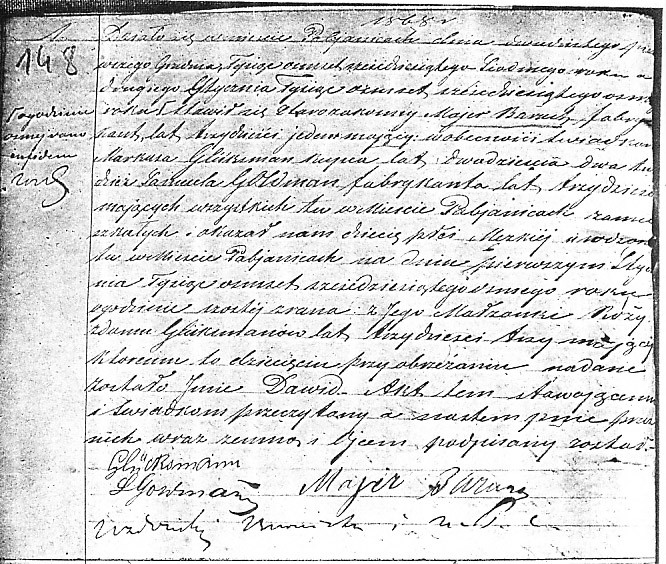 1868 r
1
148
Działo się w mieście Pabjanicach dnia dwudziestego pier
wszego Grudnia Tysiąc ośmset sześćdziesiątego siódmego roku a
drugiego Stycznia Tysiąc ośmset sześćdziesiątego ósm
roku Stawił się Starozakonny Majer Baruch, fabry
kant, lat trzydzieści jeden mający w obecności świadków
Markusa Glüksman kupca lat dwadzieścia dwa tu
dzież Samuela Goldman fabrykanta lat trzydzieści
mających wszystkich tu w Mieście Pabjanicach zamie
szkałych i okazał nam dziecię płci Męzkiej urodzone
tu w Mieście Pabjanicach na dniu pierwszym Stycz
nia Tysiąc ośmset sześćdziesiątego ósmego roku
o godzinie szóstej zrana z Jego Małżonki Róży
z domu Glüksmanów lat trzydzieści trzy mającej
któremu to dziecięciu przy obrzezaniu nadane
zostało Imie Dawid. Akt ten stawającemu
i świadkom przeczytany a następnie przez
nich wraz z emną i Ojcem podpisany został.
Glücksmann
S Goldman Majer Baruch